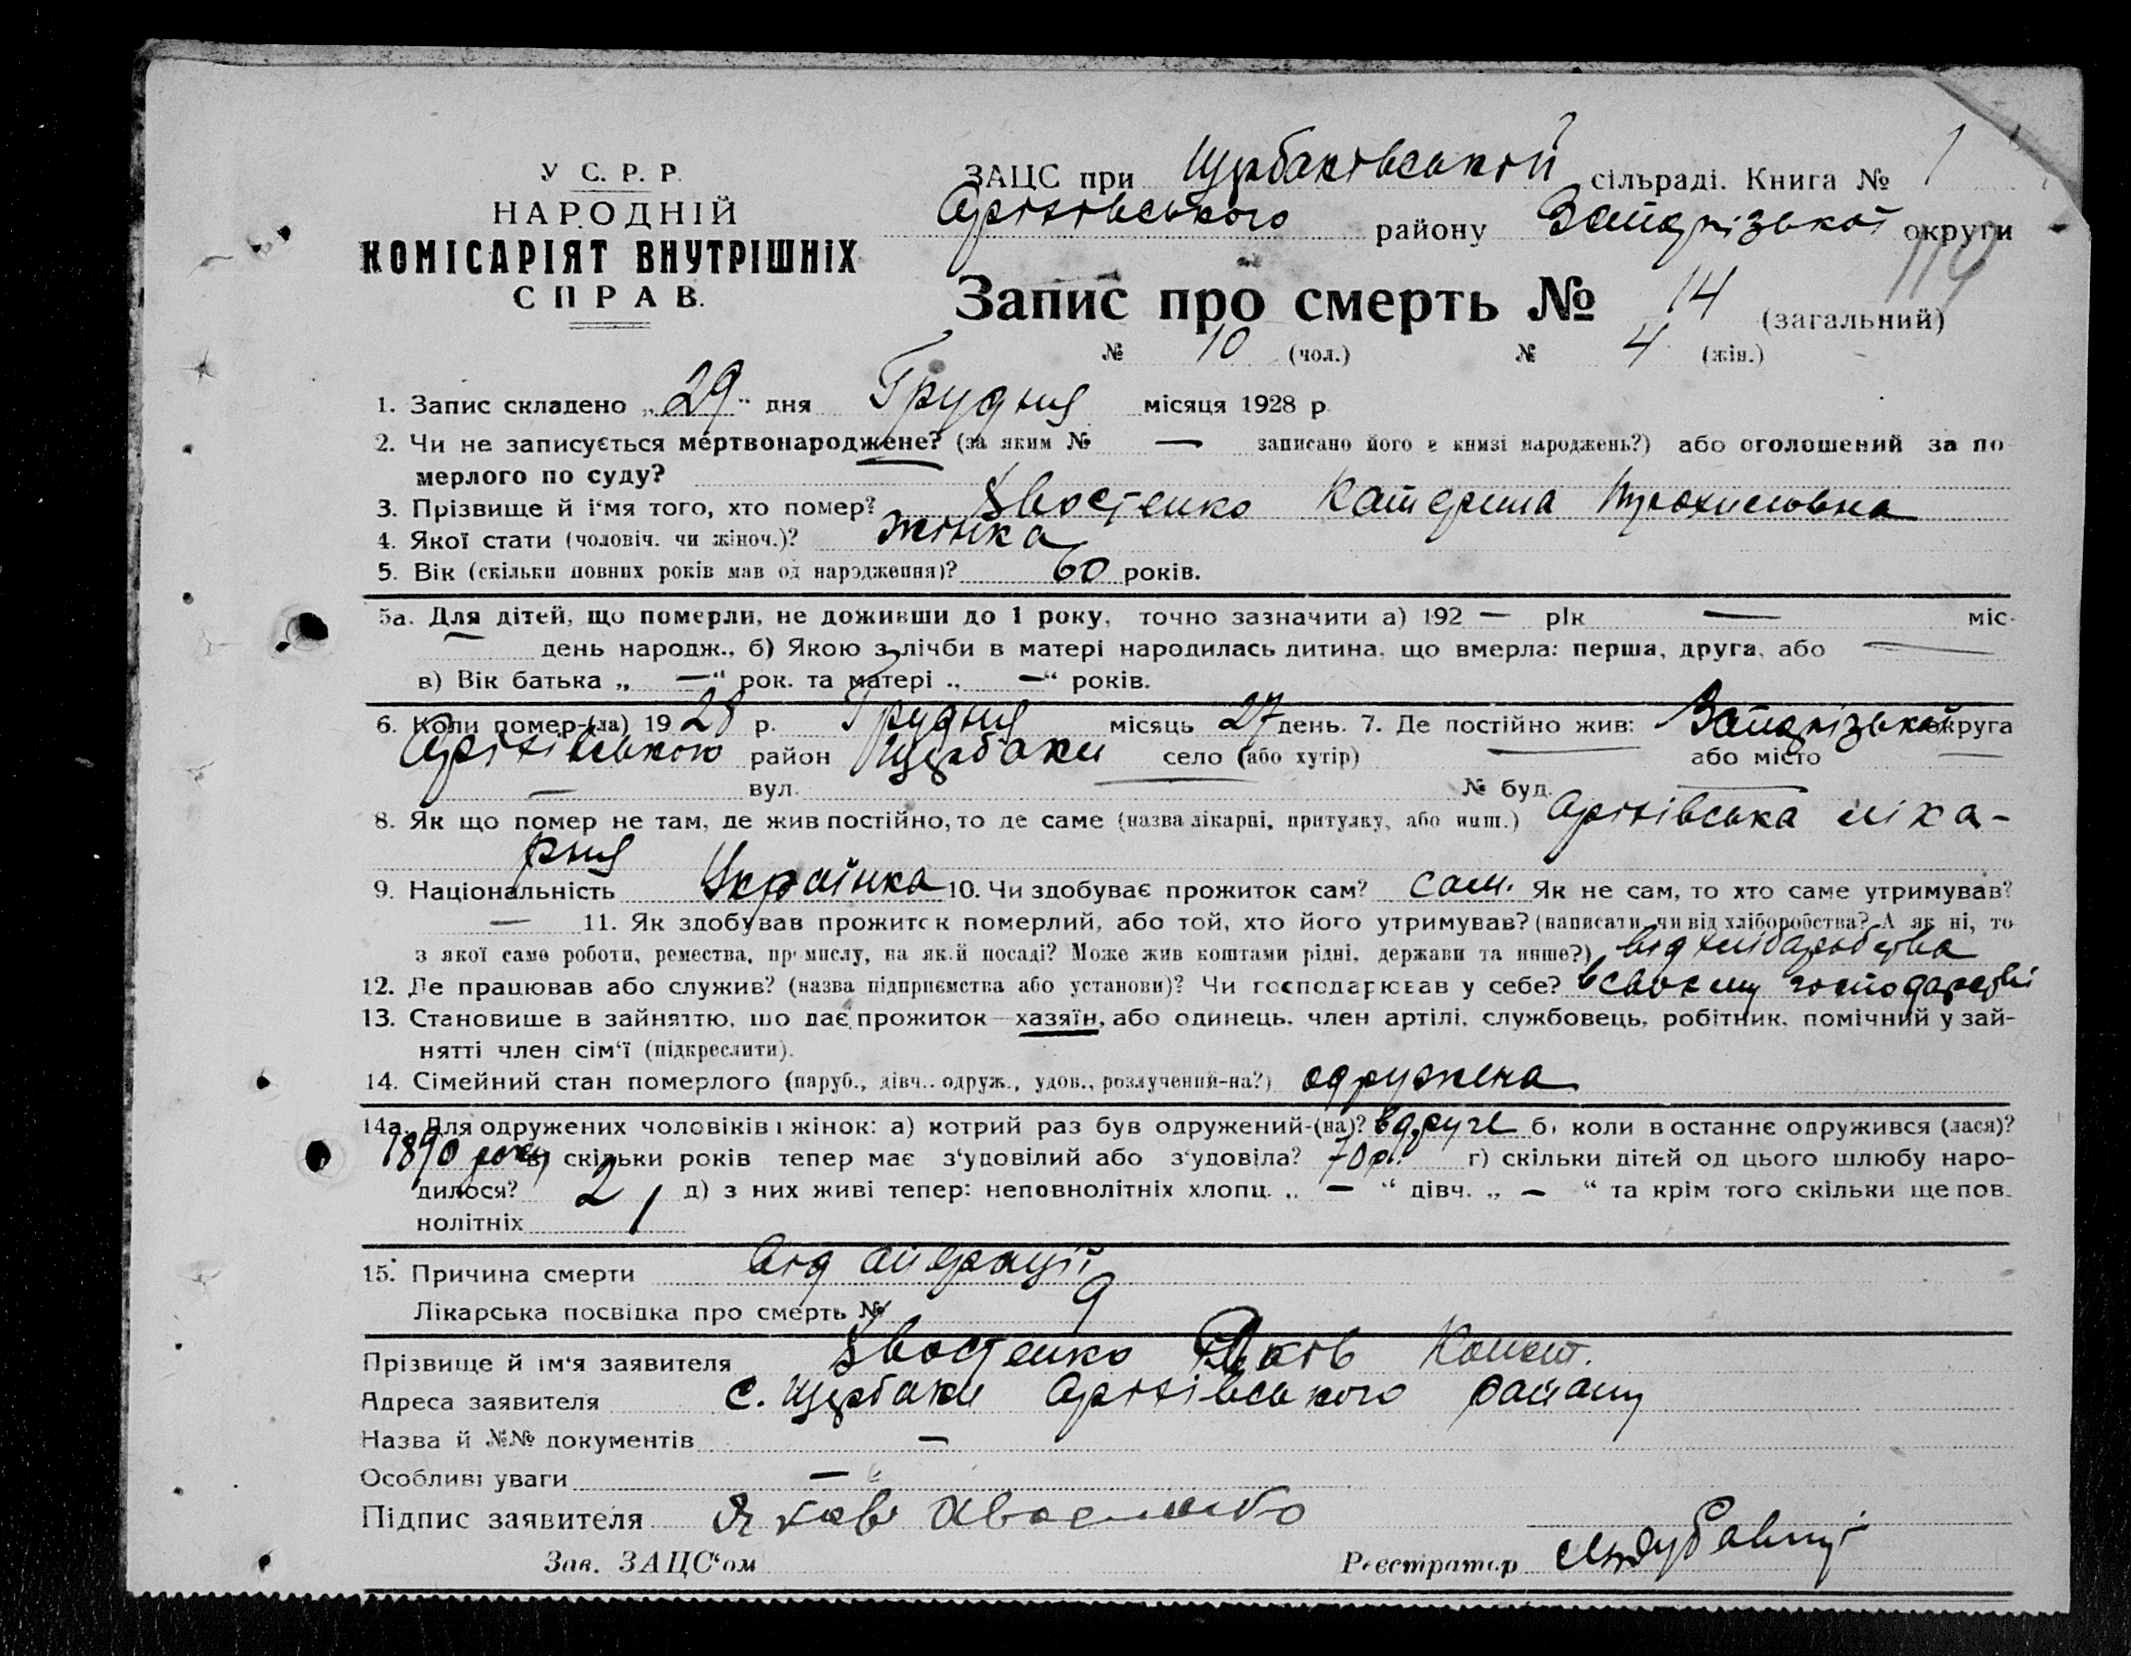 У С. Р. Р.
НАРОДНІЙ
КОМІСАРІЯТ ВНУТРІШНІХ
СПРАВ.
ЗАЦС при Щербаківській сільраді. Книга № 1
Оріхівського району Запорізької округи
114
Запис про смерть № 14 (загальний)
№ 10 (чол.) № 4 (жін.)
1. Запис складено „29“ дня Грудня місяця 1928 р.
2. Чи не записується мертвонароджене? (за яким № — записано його в книзі народжень?) або оголошений за по-
мерлого по суду?
3. Прізвище й і‘мя того, хто помер? Хвостенко Катерина
4. Якої стати (чоловіч. чи жіноч.)? жінка
5. Вік (скільки повних років мав од народження)? 60 років.
5а. Для дітей, що померли, не доживши до 1 року, точно зазначити а) 192 — рік — міс.
— день народж., б) Якою з лічби в матері народилась дитина, що вмерла: перша, друга, або —
в) Вік батька „ —“ рок. та матері „ —“ років.
6. Коли помер-(ла) 1928 р. Грудня місяць 27 день. 7. Де постійно жив: Запорізької округа
Оріхівською район Щербаки село (або хутір) — або місто —
— вул. — № буд. —
8. Як що помер не там, де жив постійно, то де саме (назва лікарні, притулку, або инш.) Оріхівська ліка-
рня
9. Національність Українка 10. Чи здобуває прожиток сам? сам. Як не сам, то хто саме утримував?
— 11. Як здобував прожиток померлий, або той, хто його утримував? (написати чи від хліборобства? А як ні, то
з якої саме роботи, ремества, промислу, на якій посаді? Може жив коштами рідні, держави та инше?) від хліборобства
12. Де працював або служив? (назва підприємства або установи)? Чи господарював у себе? в своєму господарстві
13. Становище в зайняттю, що дає прожиток—хазяїн, або одинець, член артілі, службовець, робітник, помічний у зай-
нятті член сім‘ї (підкреслити).
14. Сімейний стан померлого (паруб., дівч., одруж., удов., розлучений-на?) одружена
14а. Для одружених чоловіків і жінок: а) котрий раз був одружений-(на)? вдруге б) коли в останнє одружився (лася)?
1890 року в) скільки років тепер має з‘удовілий або з‘удовіла? 70 р. г) скільки дітей од цього шлюбу наро-
дилося? 2 д) з них живі тепер: неповнолітніх хлопц. „ — “ дівч. „ — “ та крім того скільки ще пов-
нолітніх 1
15. Причина смерти Від операції
Лікарська посвідка про смерть № 9
Прізвище й ім‘я заявителя Хвостенко Яків
Адреса заявителя с. Щербаки Оріхівського району
Назва й №№ документів —
Особливі уваги —
Підпис заявителя Яков Хвостенко
Зав. ЗАЦС‘ом Реєстратор